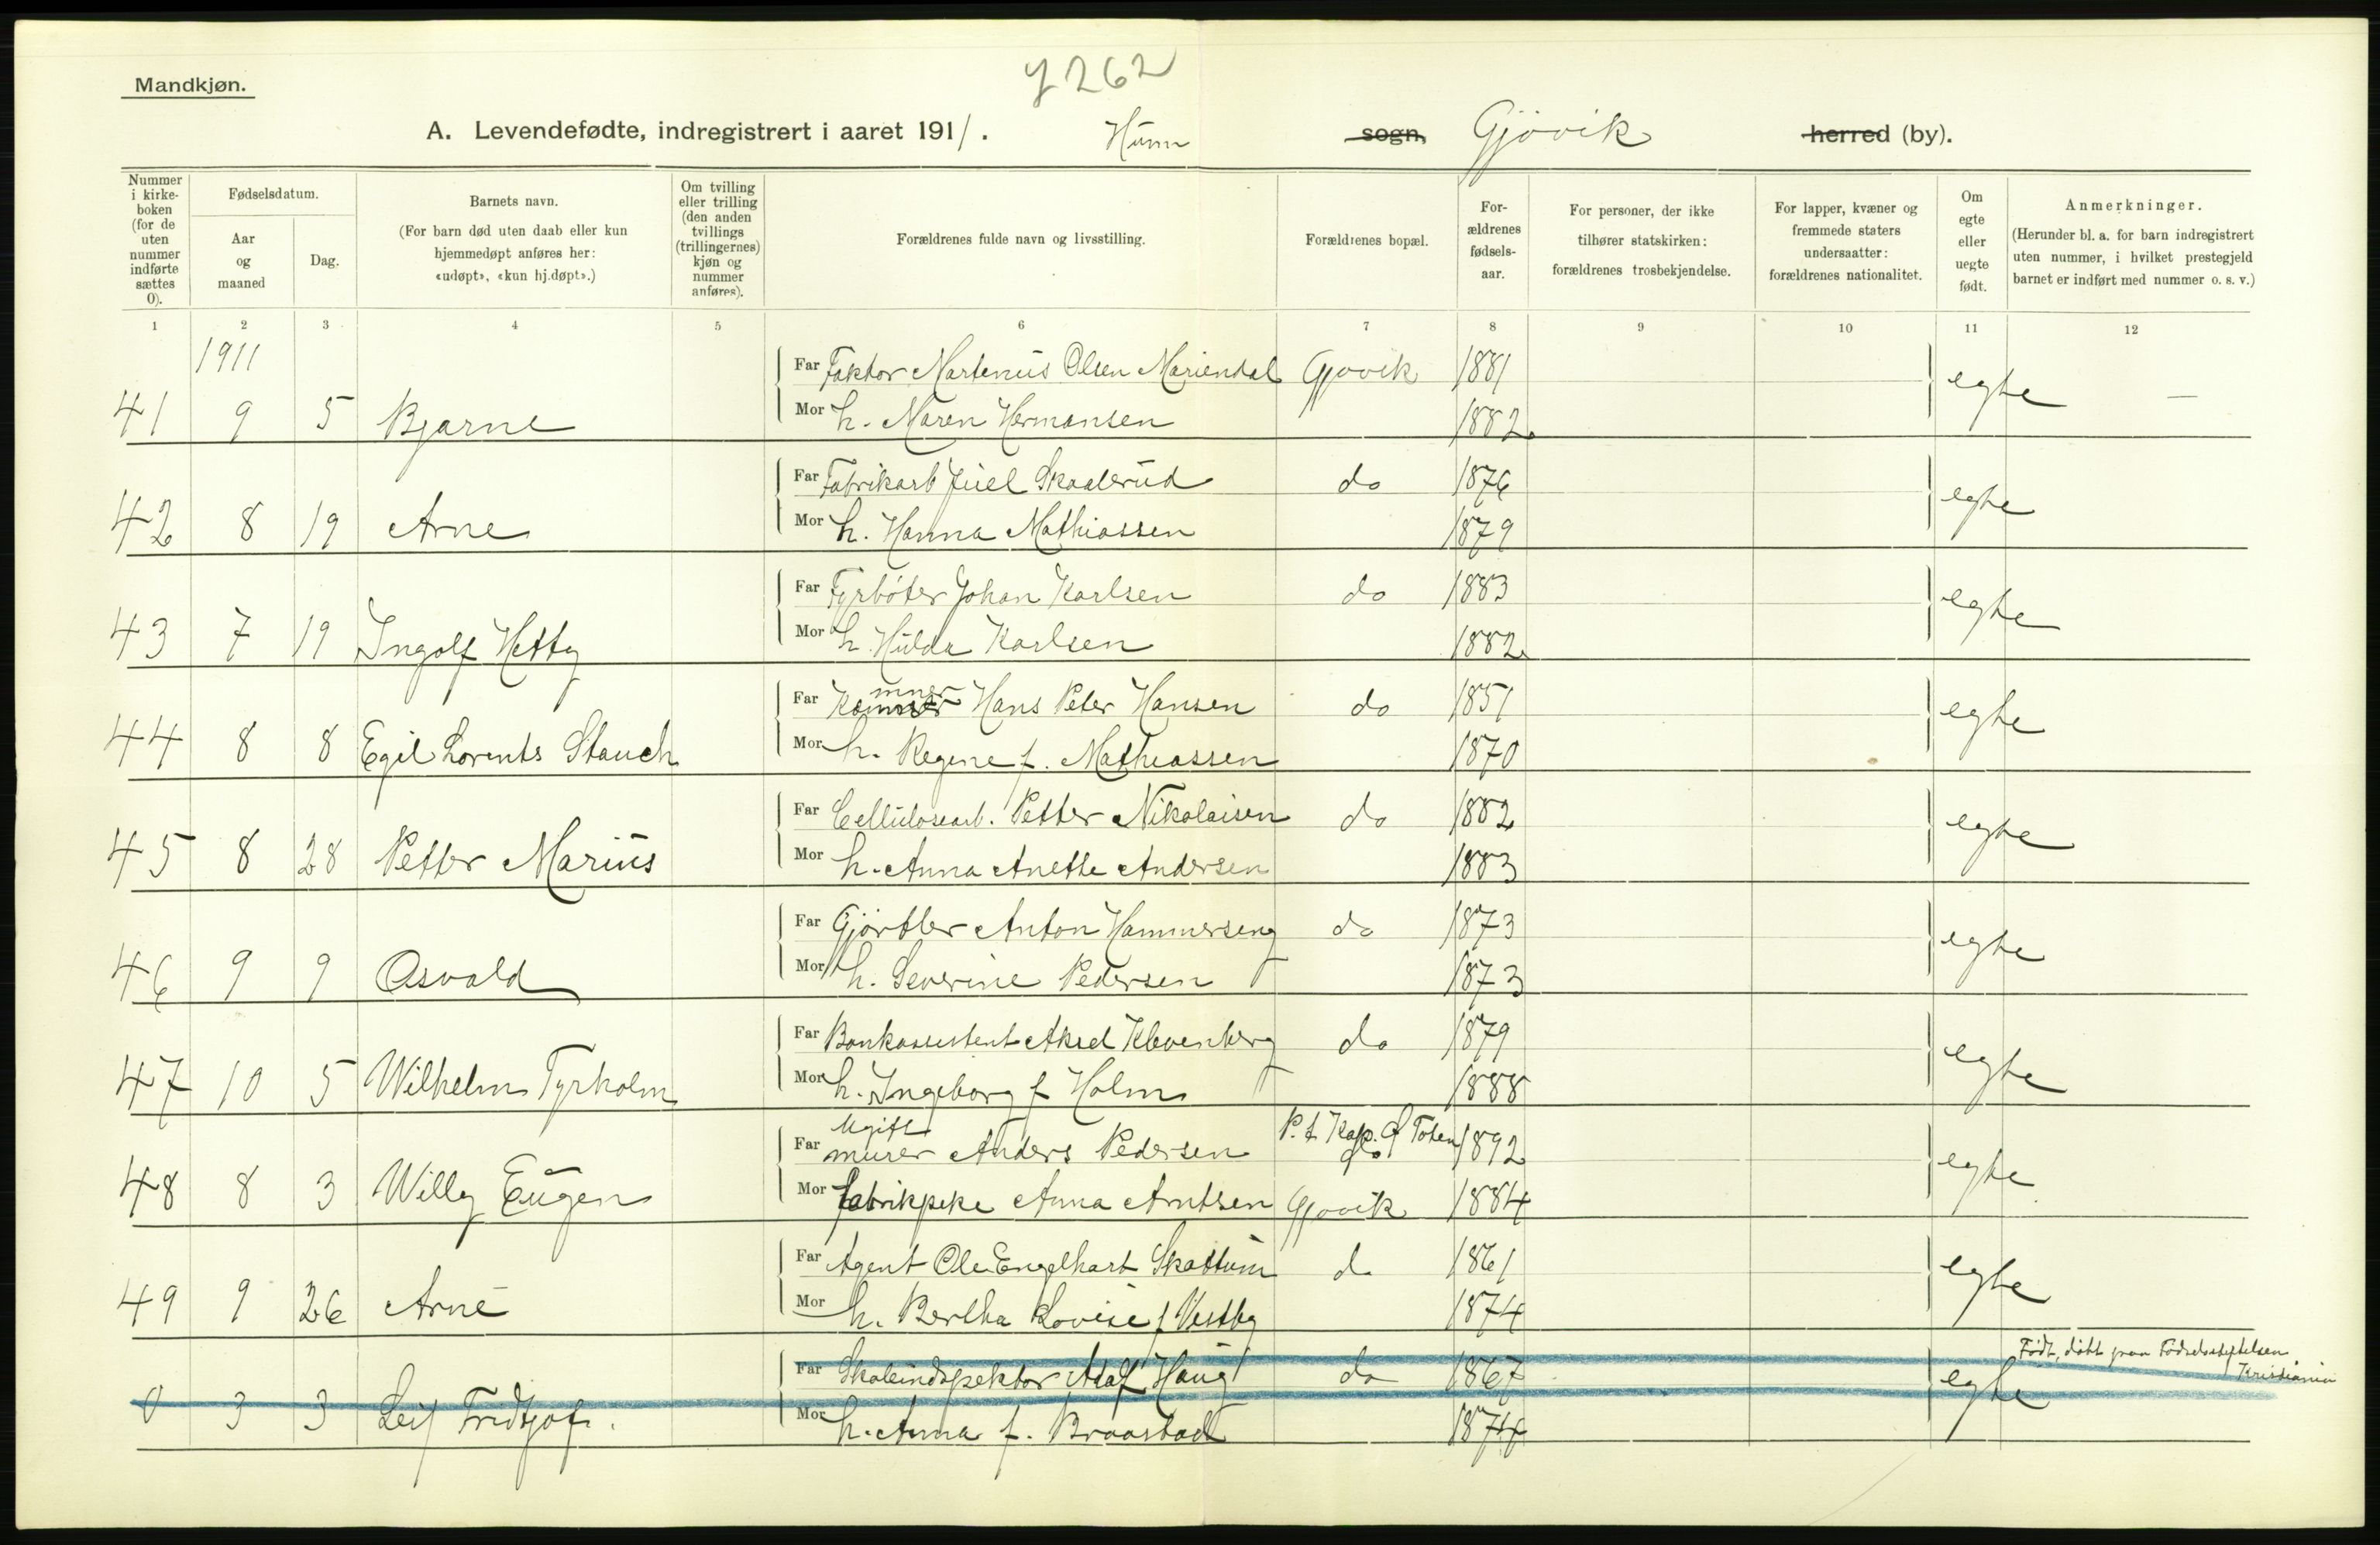 Mandkjøn.
y 262
A. Levendefødte, indregistrert i aaret 1911. Hunn sogn, Gjøvik herred (by).
Nummer i kirke-boken (for de uten nummer indførte sættes 0).
Fødselsdatum.
Aar og maaned
Dag.
Barnets navn.
(For barn død uten daab eller kun hjemmedøpt anføres her: «udøpt», «kun hj.døpt».)
Om tvilling eller trilling (den anden tvillings (trillingernes) kjøn og nummer anføres).
Forældrenes fulde navn og livsstilling.
Forældrenes bopæl.
For-ældrenes fødsels-aar.
For personer, der ikke tilhører statskirken: forældrenes trosbekjendelse.
For lapper, kvæner og fremmede staters undersaatter: forældrenes nationalitet.
Om egte eller uegte født.
Anmerkninger.
(Herunder bl. a. for barn indregistrert uten nummer, i hvilket prestegjeld barnet er indført med nummer o. s. v.)
1 2 3 4 5 6 7 8 9 10 11 12
1911
Far Faktor Martenius Olsen Mariendal Gjøvik 1881
41 9 5 Bjarne Mor h. Maren Hermansen 1882 egte —
Far Fabrikarb Juel Skaalerud do 1876
42 8 19 Arne Mor h. Hanna Mathiassen 1879 egte
Far Fyrbøter Johan Karlsen do 1883
43 7 19 Ingolf Hetty Mor h. Hulda Karlsen 1882 egte
Far Hans Peter Hansen do 1851
44 8 8 Egil Lorents Stauch Mor h. Regine f. Mathiassen 1870 egte
Far Cellulosearb. Petter Nikolaisen do 1882
45 8 28 Petter Marius Mor h. Anna Anette Andersen 1883 egte
Far Gjørtler Anton Hammerseng do 1873
46 9 9 Osvald Mor h. Severine Pedersen 1873 egte
Far Bankassistent Aksel Klevenberg do 1879
47 10 5 Wilhelm Tyrholm Mor h. Ingeborg f Holm 1888 egte
Ugift
Far murer Anders Pedersen P.t. Kap. Ø Toten 1892
48 8 3 Willy Eugen Mor fabrikpike Anna Arntsen Gjøvik 1884 egte
Far Agent Ole Engelhart Skattum do 1861
49 9 26 Arne Mor h. Bertha Lovise f Vestby 1874 egte
Far Skoleindspektor Adolf Haug do 1867 Født, døbt paa Fødselsstiftelsen Kristiania
0 3 3 Leif Fridtjof. Mor h. Anna f. Braastad 1874 egte